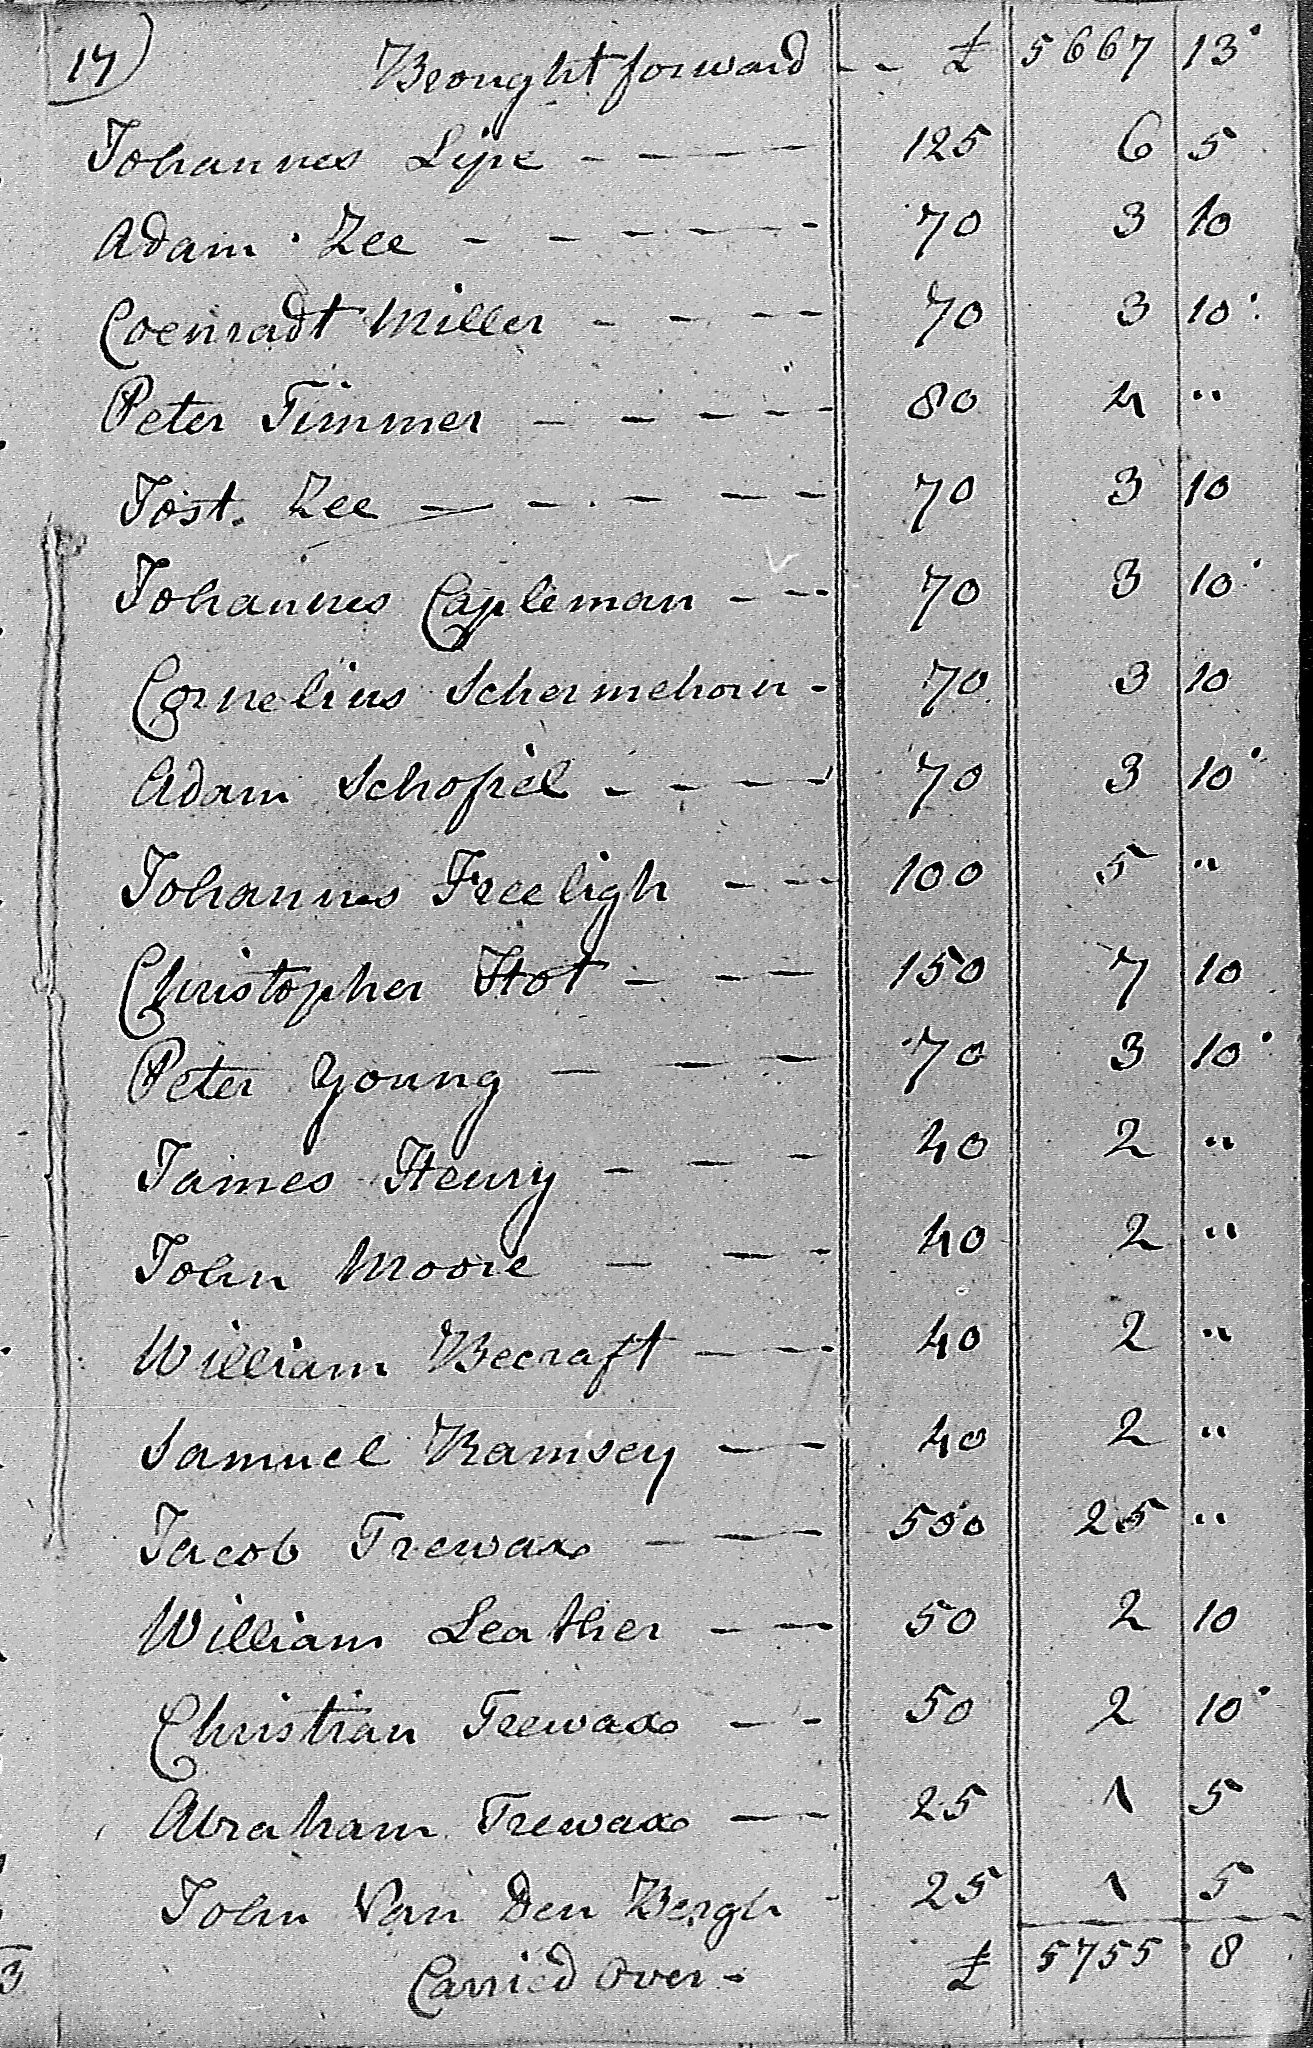 17) Brought forward - - £ 5667 13
Johannes Lipe - - - - 125 6 5
Adam Zee - - - - - 70 3 10
Coenradt Miller - - - - 70 3 10
Peter Timmer - - - - - 80 4 "
Jost. Zee - - - - - 70 3 10
Johannes Capleman - - - 70 3 10
Cornelius Schermehorn - 70 3 10
Adam Schofiel - - - - 70 3 10
Johannes Freeligh - - - 100 5 "
Christopher Hot - - - 150 7 10
Peter Young - - - 70 3 10
James Henry - - - 40 2 "
John Moore - - - 40 2 "
William Becraft - - - 40 2 "
Samuel Ramsey - - 40 2 "
Jacob Trewax - - - 500 25 "
William Leather - - 50 2 10
Christian Trewax - - 50 2 10
Abraham Trewax - - 25 1 5
John Van Den Bergh - 25 1 5
Carried Over - £ 5755 8